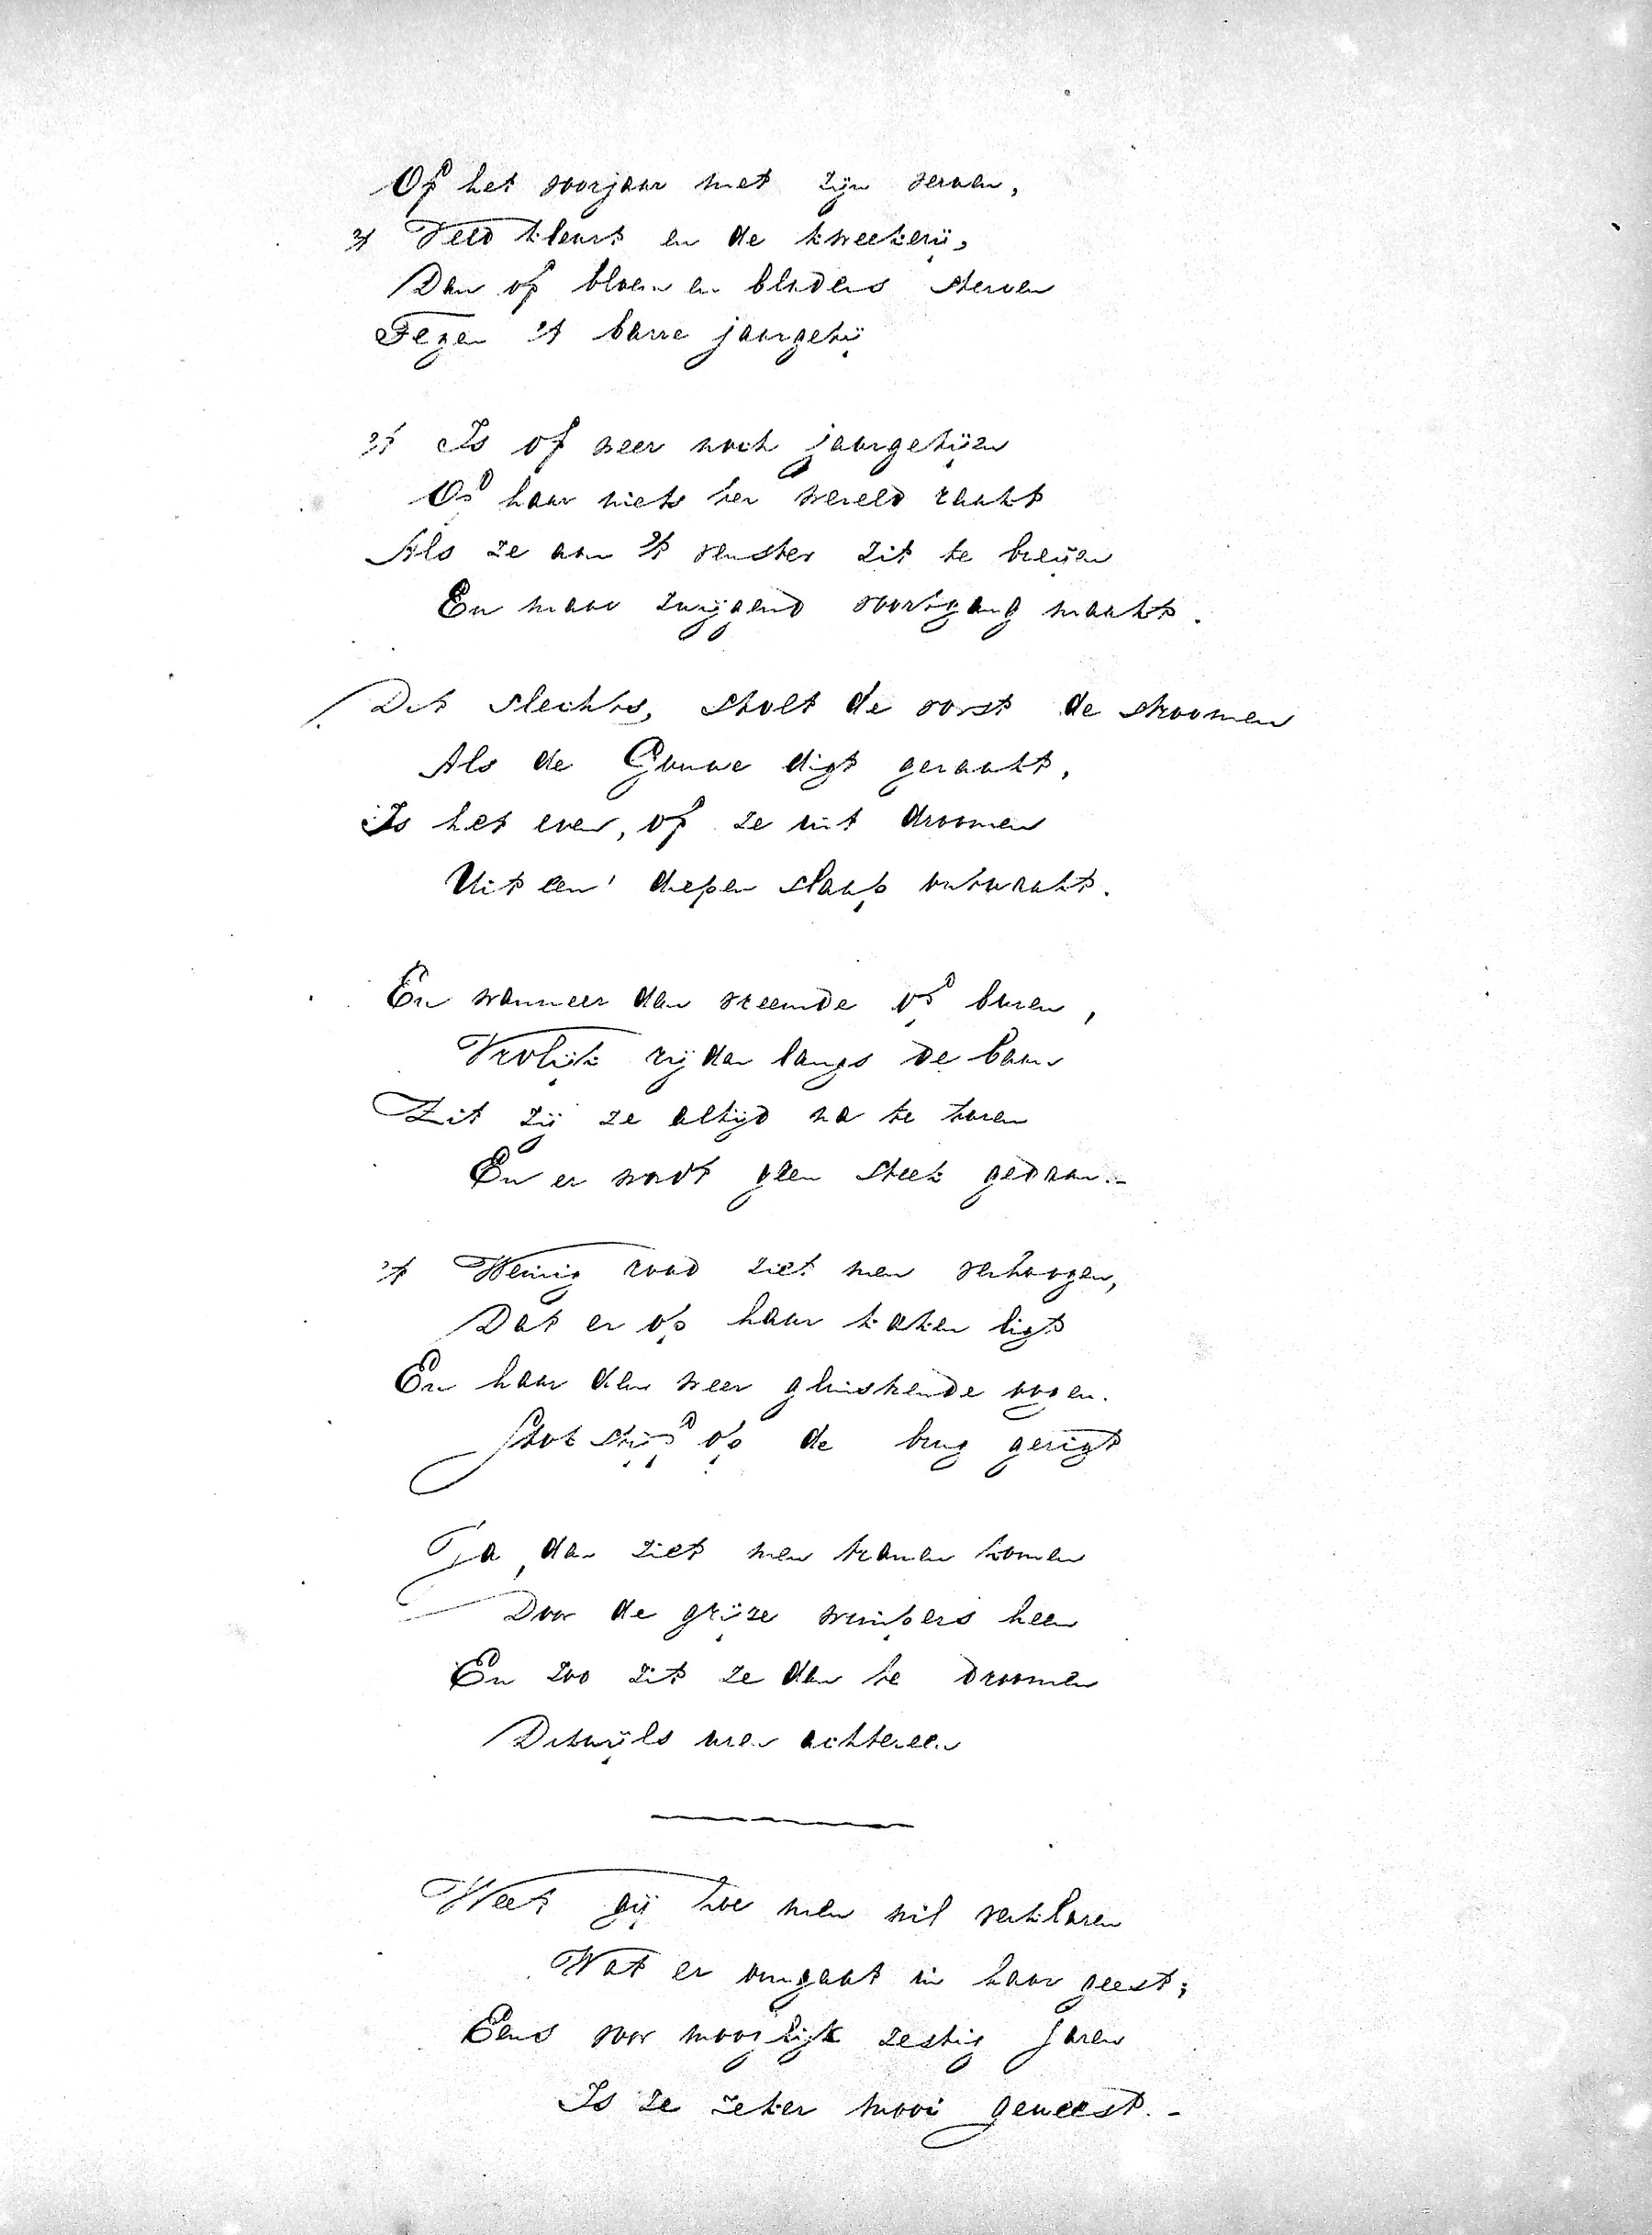 Of het voorjaar met zijn verven,
't Veld kleurt en de kweekerij,
Dan of bloem en bladers sterven
Tegen 't barre jaargetij

't Is of weer noch jaargetijen
Op haar niets ter wereld raakt
Als ze aan 't venster zit te breijen
En maar zwijgend voortgang maakt.

Dit slechts, stolt de vorst de stroomen
Als de Gouwe digt geraakt,
Is het even, of ze uit droomen
Uit een' diepen slaap ontwaakt.

En wanneer dan vreemde op buren,
Vrolijk rijden langs de baan
Zit zij ze altijd na te turen
En er wordt geen steek gedaan.-

't Weinig rood ziet men verhoogen,
Dat er op haar kaken ligt
En haar dan weer glinstrende oogen.
Strak stijf op de brug gerigt

Ja, dan ziet men tranen komen
Door de grijze wimpers heen
En zoo zit ze dan te droomen
Dikwijls uren achtereen

Weet gij hoe men wil verklaren
Wat er omgaat in haar geest;
Eens voor mooglijk zestig Jaren
Is ze zeker mooi geweest.-